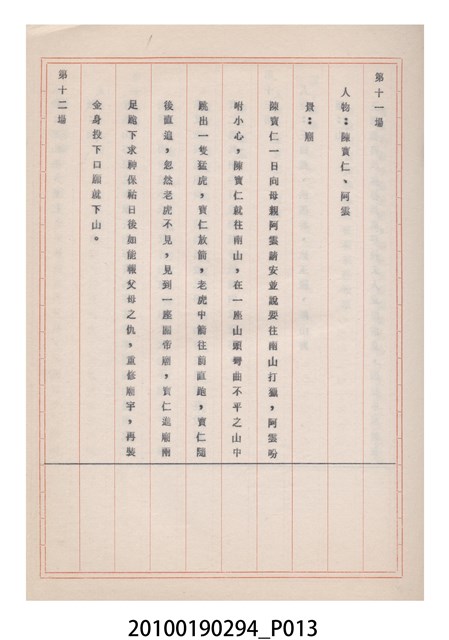 第十一場
人物：陳寶仁、阿雲
景：廟
陳寶仁一日向母親阿雲請安並說要往南山打獵，阿雲吩
咐小心，陳寶仁就往南山，在一座山頭彎曲不平之山中
跳出一隻猛虎，寶仁放箭，老虎中箭往前直跑，寶仁隨
後直追，忽然老虎不見，見到一座關帝廟，寶仁進廟兩
足跪下求神保祐日後如能報父母之仇，重修廟宇，再裝
金身投下口願就下山。
第十二場
20100190294_P013